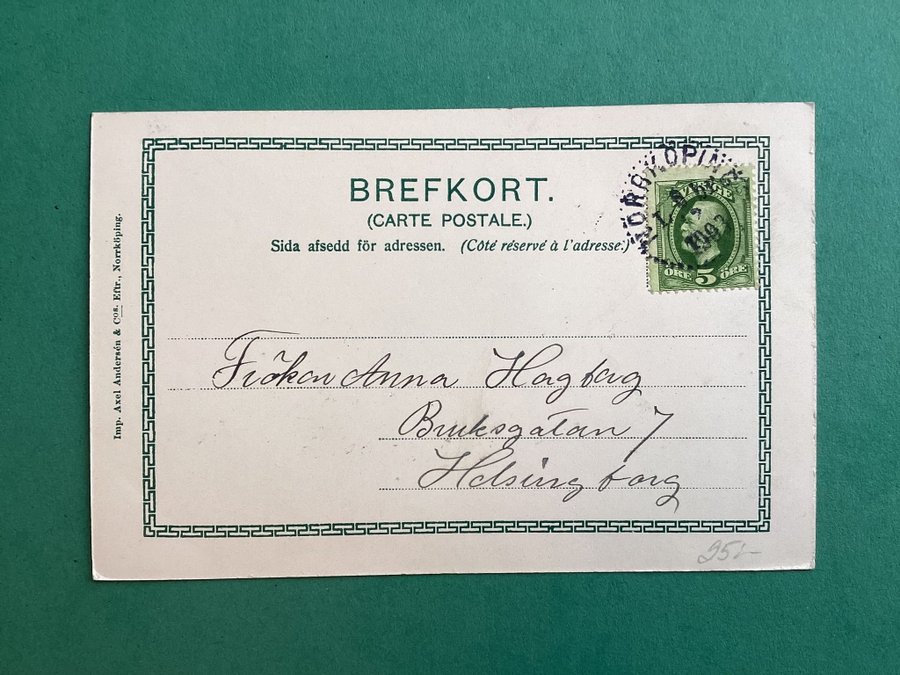 BREFKORT.
(CARTE POSTALE.)
Sida afsedd för adressen. (Côté réservé à l'adresse.)
NORRKÖPING
1903
ÖRE 5 ÖRE
Fröken Anna Hagberg
Bruksgatan 7
Helsingborg
Imp. Axel Andersén & Cos. Eftr., Norrköping.
95:-